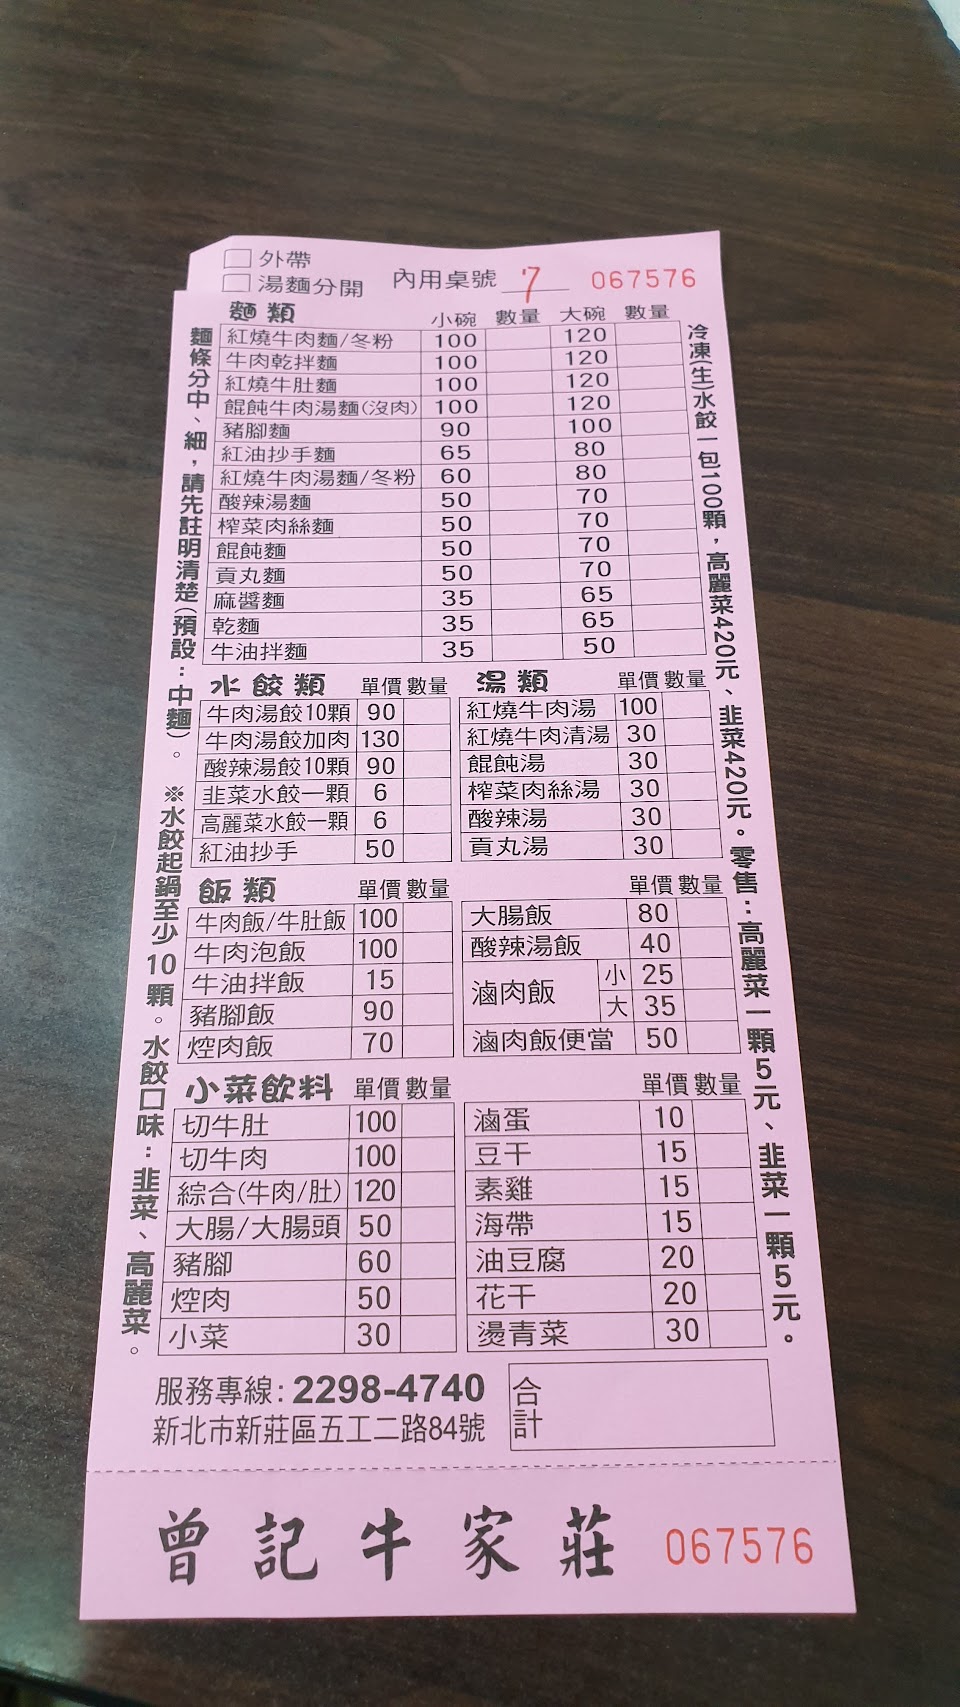 外帶
湯麵分開
內用桌號 7 067576
麵類 小碗 數量 大碗 數量
紅燒牛肉麵/冬粉 100 120
牛肉乾拌麵 100 120
紅燒牛肚麵 100 120
餛飩牛肉湯麵(沒肉) 100 120
豬腳麵 90 100
紅油抄手麵 65 80
紅燒牛肉湯麵/冬粉 60 80
酸辣湯麵 50 70
榨菜肉絲麵 50 70
餛飩麵 50 70
貢丸麵 50 70
麻醬麵 35 65
乾麵 35 65
牛油拌麵 35 50
水餃類 單價 數量
牛肉湯餃10顆 90
牛肉湯餃加肉 130
酸辣湯餃10顆 90
韭菜水餃一顆 6
高麗菜水餃一顆 6
紅油抄手 50
湯類 單價 數量
紅燒牛肉湯 100
紅燒牛肉清湯 30
餛飩湯 30
榨菜肉絲湯 30
酸辣湯 30
貢丸湯 30
飯類 單價 數量
牛肉飯/牛肚飯 100
牛肉泡飯 100
牛油拌飯 15
豬腳飯 90
焢肉飯 70
單價 數量
大腸飯 80
酸辣湯飯 40
滷肉飯 小 25
大 35
滷肉飯便當 50
小菜飲料 單價 數量
切牛肚 100
切牛肉 100
綜合(牛肉/肚) 120
大腸/大腸頭 50
豬腳 60
焢肉 50
小菜 30
單價 數量
滷蛋 10
豆干 15
素雞 15
海帶 15
油豆腐 20
花干 20
燙青菜 30
麵條分中、細，請先註明清楚(預設：中麵)。 ※水餃起鍋至少10顆。水餃口味：韭菜、高麗菜。
冷凍(生)水餃一包100顆，高麗菜420元、韭菜420元。零售：高麗菜一顆5元、韭菜一顆5元。
服務專線：2298-4740
新北市新莊區五工二路84號
合計
曾記牛家莊 067576